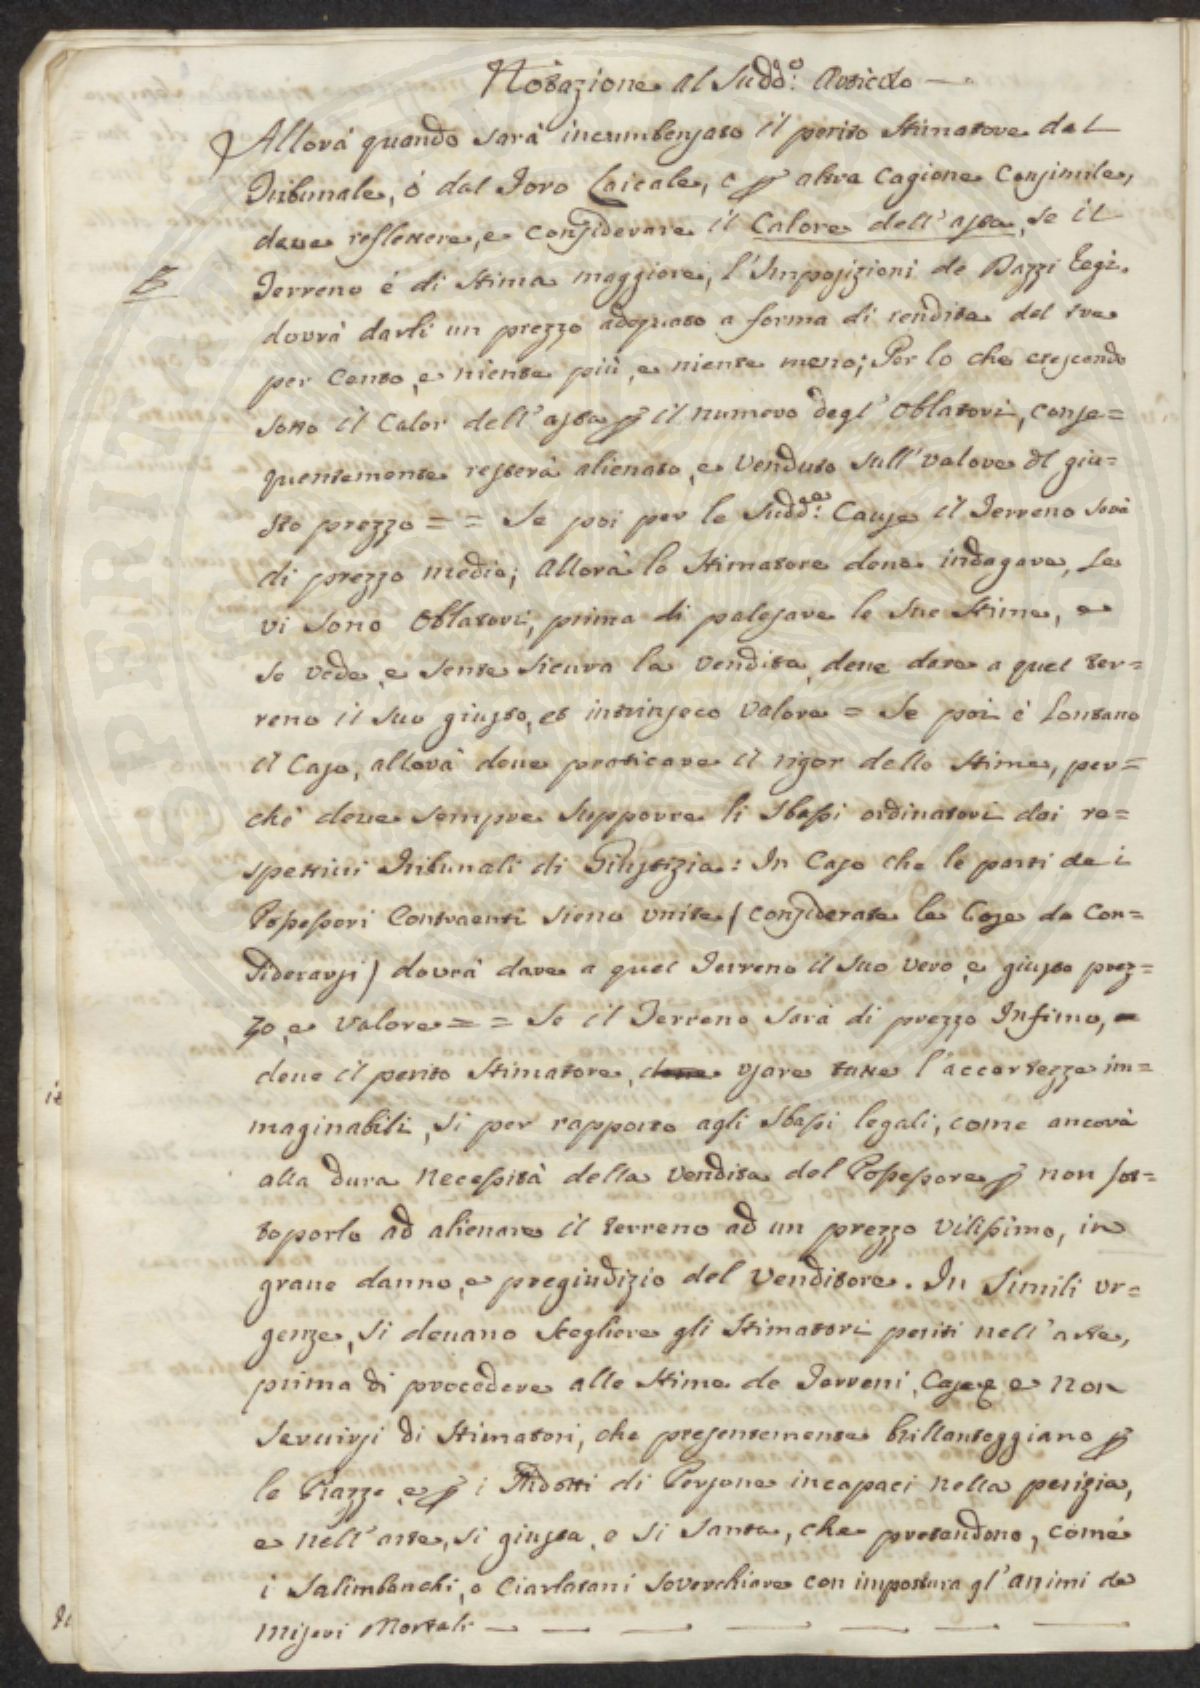 Notazione al Sudd.o Articolo
Allorà quando sarà incumbenzato il perito Stimatore dal
Tribunale, ò dal Foro Laicale, o p altra Cagione Consimile,
deue reflettere, e considerare il Calore dell'asta, se il
Terreno è di Stima maggiore, l'Imposizioni de Dazzi Regi.
B
dovrà darli un prezzo adequato a forma di rendita del tre
per Cento, e niente più, e niente meno; Per lo che crescendo
sotto il Calor dell'asta p il numero degl'Oblatori, conse=
quentemente resterà alienato, e Venduto sull'valore del giu=
sto prezzo = = Se poi per le Sudd.e Cause il Terreno sarà
di prezzo medio; Allorà lo Stimatore deue indagare, se
vi sono Oblatori, prima di palesare le Sue Stime, e
se vede, e sente sicura la vendita, deue dare a quel ter=
reno il suo giusto, et intrinseco valore = Se poi è Lontano
il Caso, allorà deue praticare il rigor delle Stime, per=
chè deue sempre supporre li Sbassi ordinatori dai re=
spettiui Tribunali di Giustizia: In Caso che le parti dei
Possessori Contraenti sieno unite (considerate le Cose da Con=
siderarsi) dovrà dare a quel Terreno il suo vero, e giusto prez=
zo, e valore = = Se il Terreno sarà di prezzo Infimo, =
deue il perito Stimatore, deue usare tutte l'accortezze im=
maginabili, si per rapporto agli Sbassi legali, come ancorà
alla dura necessità della vendita del Possessore p non sot=
toporlo ad alienare il terreno ad un prezzo vilissimo, in
graue danno, e pregiudizio del Venditore. In Simili ur=
genze, si deuano Scegliere gli Stimatori periti nell'arte,
prima di procedere alle Stime de Terreni, Case e non
Seruirsi di Stimatori, che presentemente brillanteggiano p
le Piazze e p i Ridotti di Persone incapaci nella perizia,
e nell'arte, si giusta, e si santa, che pretendono, comé
i Salimbanchi, o Ciarlatani soverchiare con impostura gl'animi de
Miseri Mortali